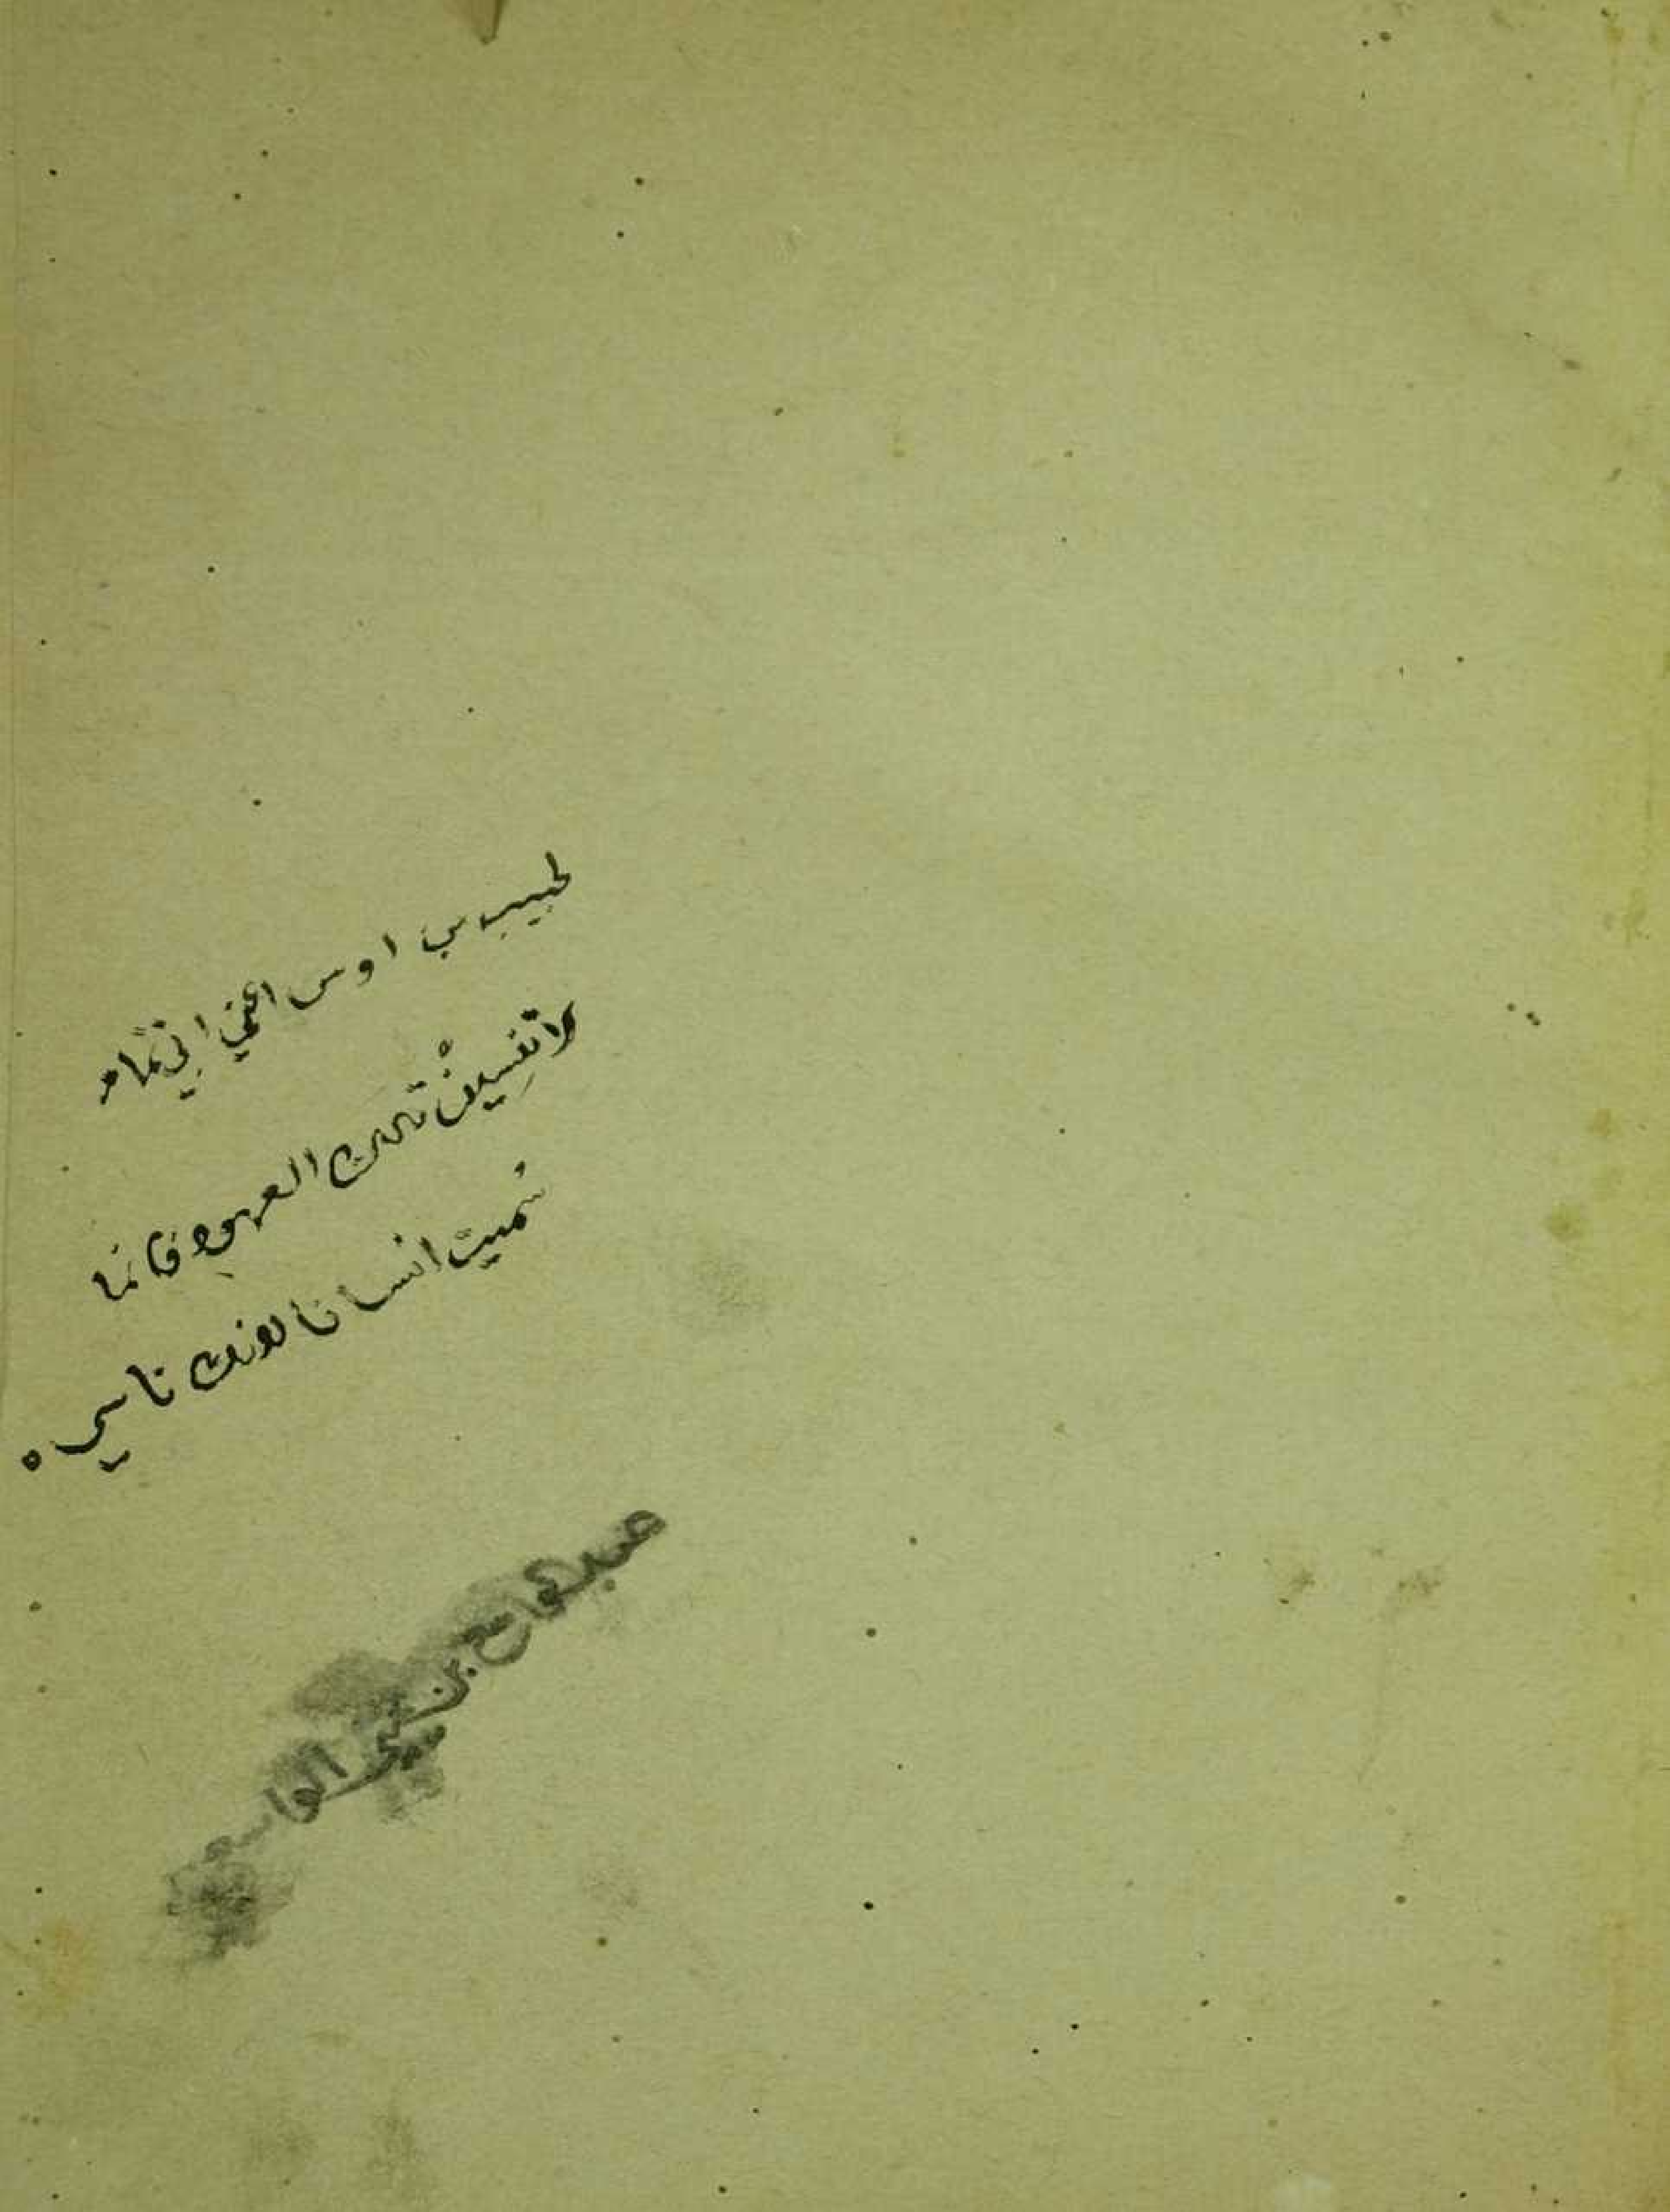 لحبيب بن اوس اعني ابي تمام
لا تنسين تلك العهود فانما
سميت انسانا لانك ناسي
عبدالواسع بن يحيى الواسعي